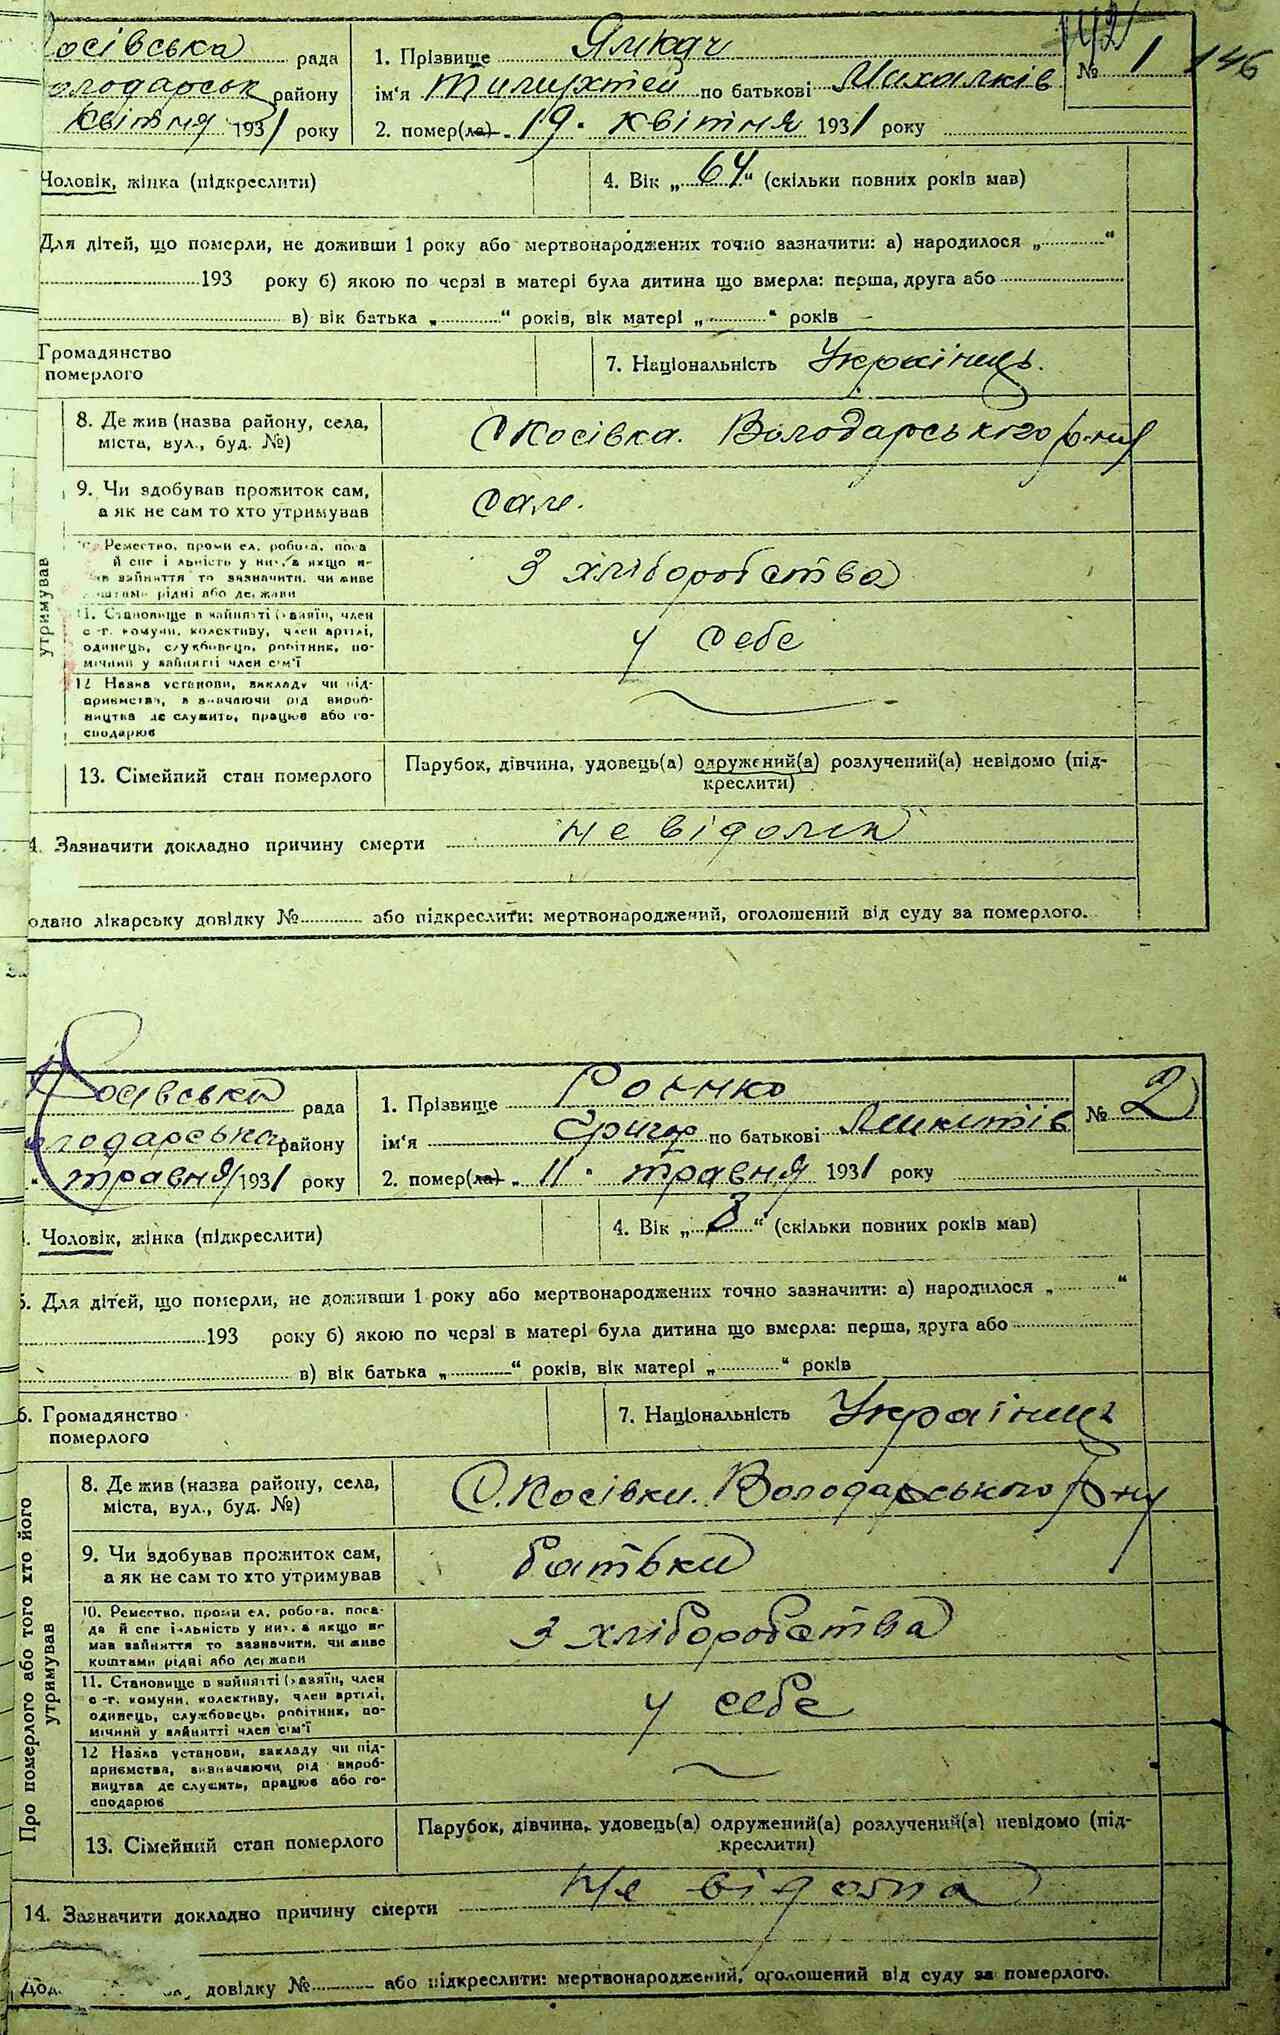 осівська рада
олодарськ району
квітня 1931 року
1. Прізвище
ім'я Тимухтей по батькові Михалків
2. помер(ла) „ 19 " квітня 1931 року
№ 1 146
142
Чоловік, жінка (підкреслити)
4. Вік „ 64 " (скільки повних років мав)
Для дітей, що померли, не доживши 1 року або мертвонароджених точно зазначити: а) народилося „ "
193 року б) якою по черзі в матері була дитина що вмерла: перша, друга або
в) вік батька „ " років, вік матері „ " років
Громадянство
померлого
7. Національність Українець.
8. Де жив (назва району, села,
міста, вул., буд. №)
с Косівка. Володарського р-ну
9. Чи здобував прожиток сам,
а як не сам то хто утримував
сам.
Ремество, проми ел, робота, поса
й спе і льність у них, а якщо н-
ав зайняття то зазначити, чи живе
коштами рідні або держави
З хліборобства
11. Становище в зайнятті (хазяїн, член
с-г. комуни, колективу, член артілі,
одинець, службовець, робітник, по-
мічний у зайнятті член сім'ї
у себе
12 Назва установи, закладу чи під-
приємства, визначаючи рід вироб-
ництва де служить, працює або го-
сподарює
утримував
13. Сімейний стан померлого
Парубок, дівчина, удовець(а) одружений(а) розлучений(а) невідомо (під-
креслити)
4. Зазначити докладно причину смерти не відома
одано лікарську довідку № або підкреслити: мертвонароджений, оголошений від суду за померлого.
Косівська рада
олодарська району
" травня 1931 року
1. Прізвище
ім'я Григор по батькові Микитів
2. помер(ла) „ 11 " травня 1931 року
№ 2
Чоловік, жінка (підкреслити)
4. Вік „ 3 " (скільки повних років мав)
5. Для дітей, що померли, не доживши 1 року або мертвонароджених точно зазначити: а) народилося „ "
193 року б) якою по черзі в матері була дитина що вмерла: перша, друга або
в) вік батька „ " років, вік матері „ " років
6. Громадянство
померлого
7. Національність Українець
8. Де жив (назва району, села,
міста, вул., буд. №)
с. Косівки. Володарського р-ну
9. Чи здобував прожиток сам,
а як не сам то хто утримував
батьки
10. Ремество, проми ел, робота, поса-
да й спе іальність у них, а якщо не
мав зайняття то зазначити, чи живе
коштами рідні або держави
З хліборобства
11. Становище в зайнятті (хазяїн, член
с-г. комуни, колективу, член артілі,
одинець, службовець, робітник, по-
мічний у зайнятті член сім'ї
у себе
12 Назва установи, закладу чи під-
приємства, визначаючи рід вироб-
ництва де служить, працює або го-
сподарює
Про померлого або того хто його
утримував
13. Сімейний стан померлого
Парубок, дівчина, удовець(а) одружений(а) розлучений(а) невідомо (під-
креслити)
14. Зазначити докладно причину смерти Не відома
Дод. довідку № або підкреслити: мертвонароджений, оголошений від суду за померлого.